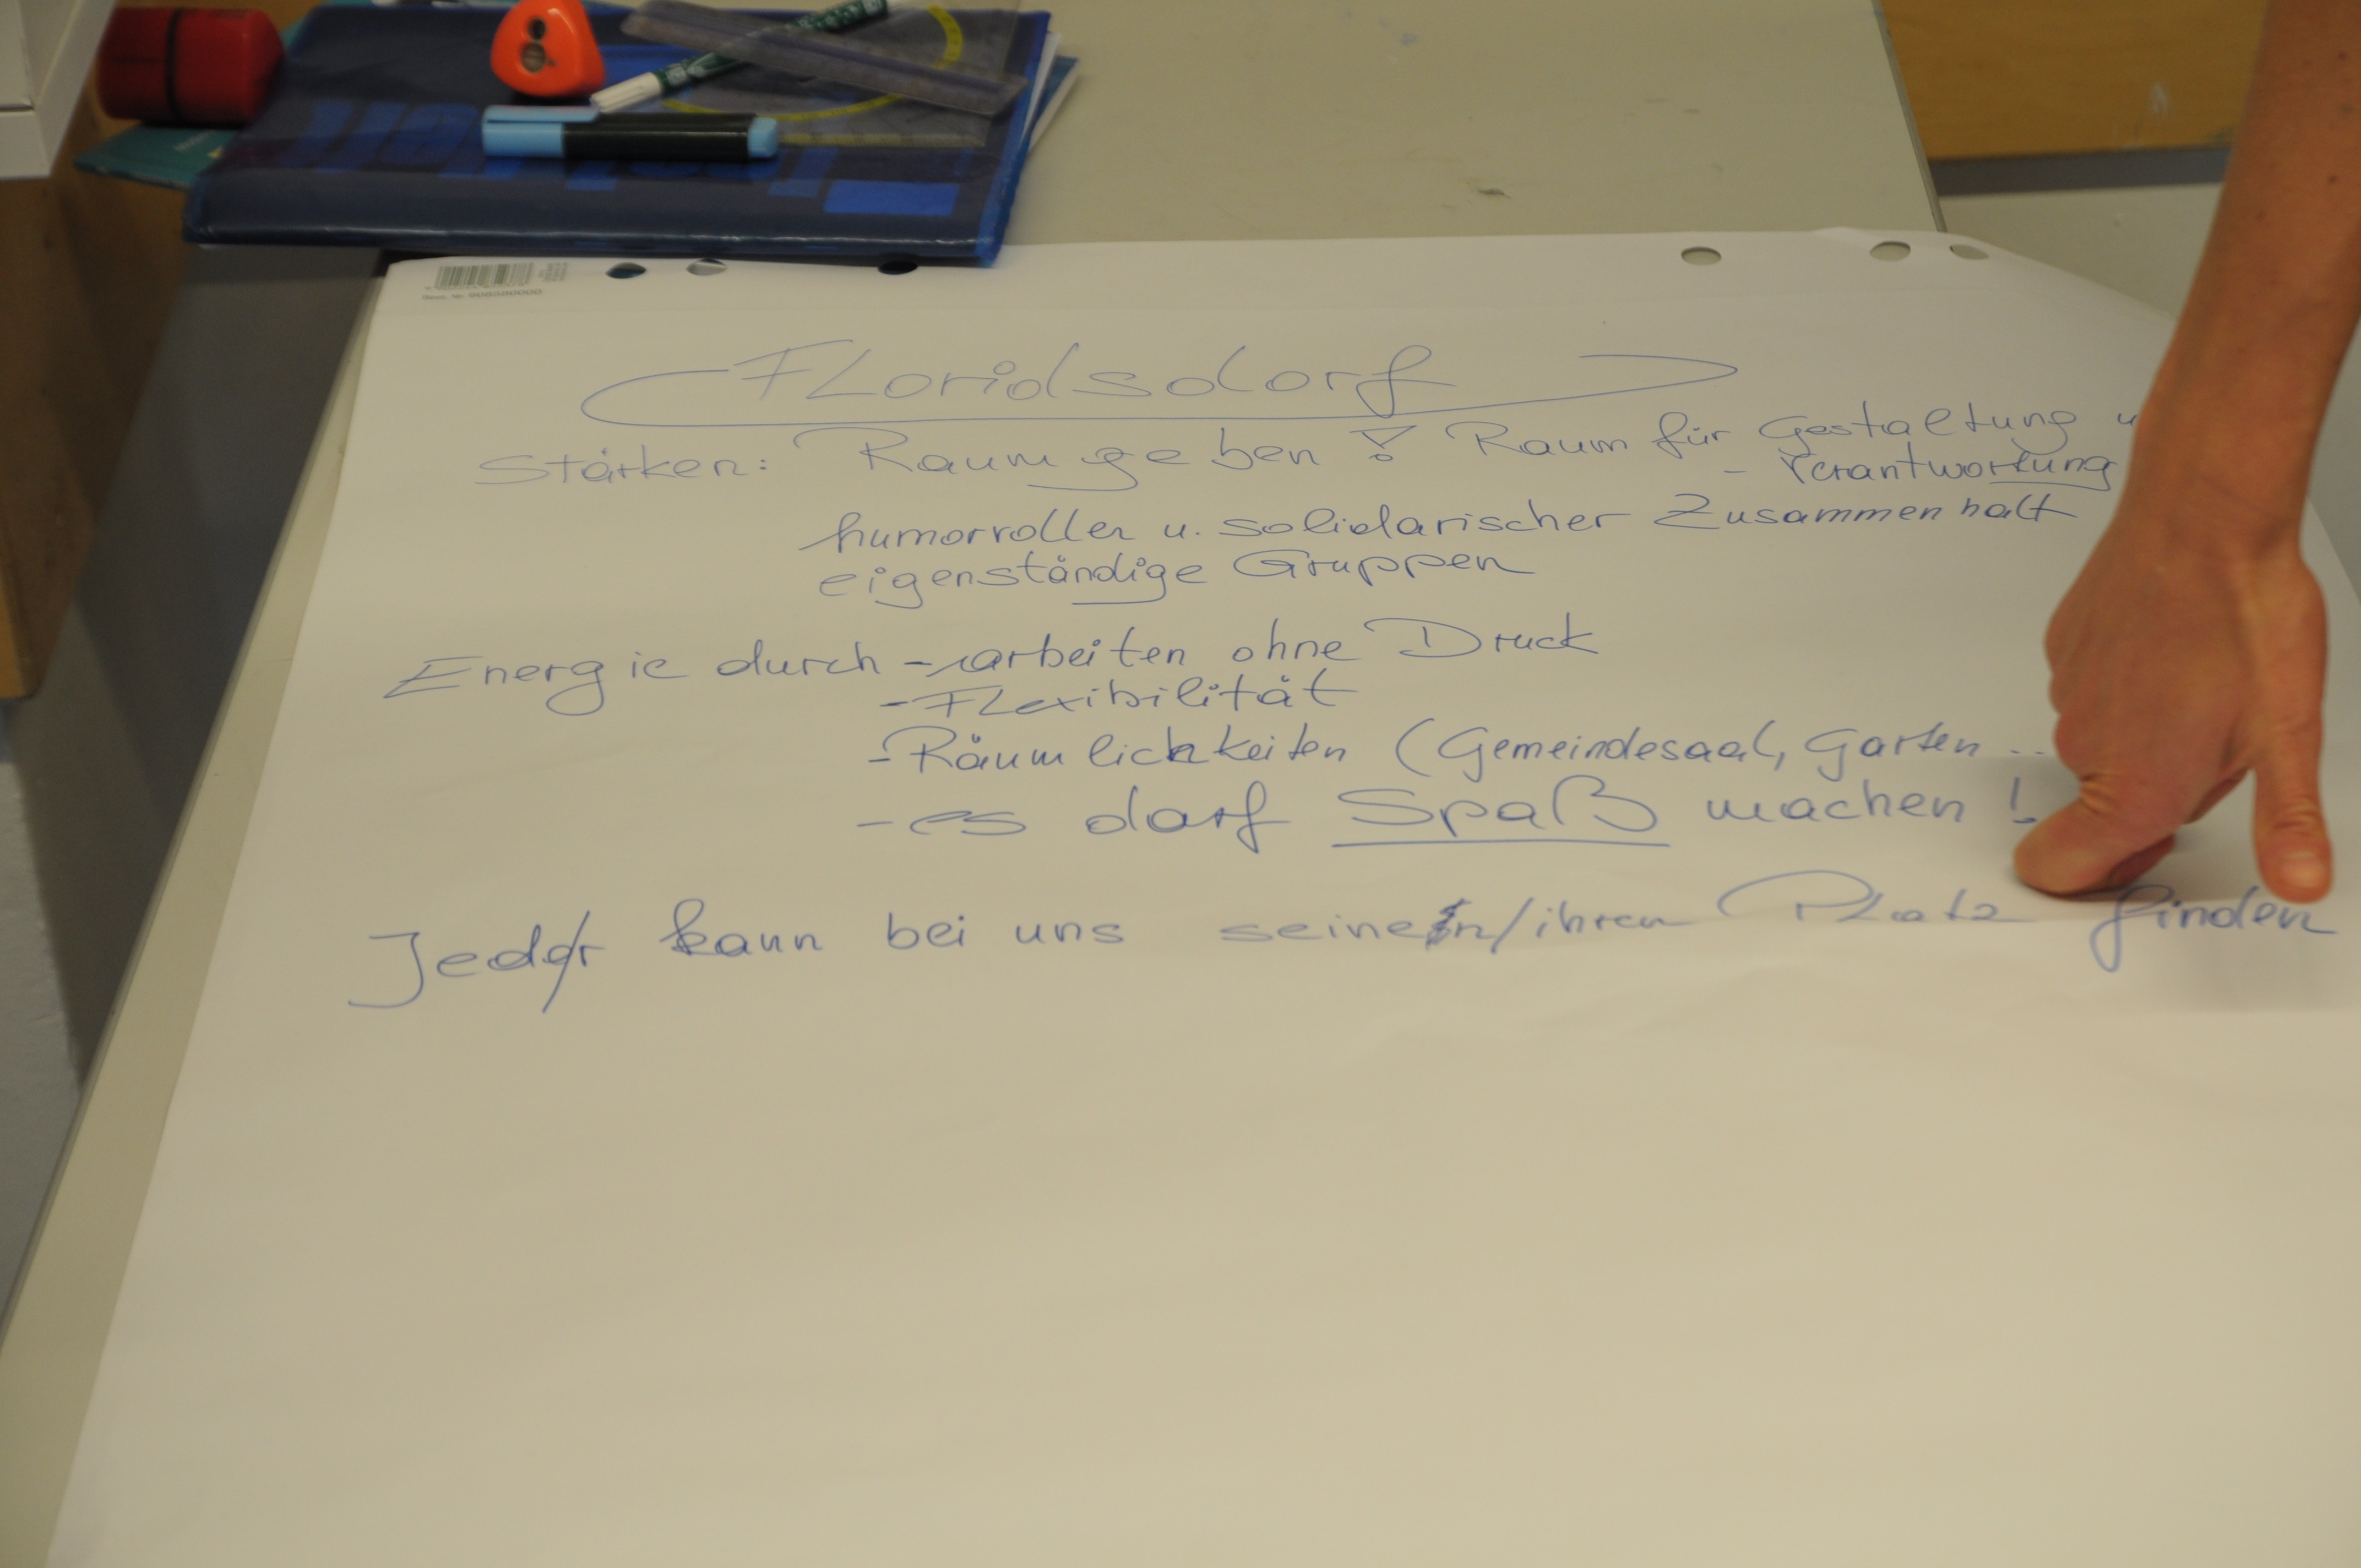 Best. Nr. 908500000
Floridsdorf
Stärken: Raum geben! Raum für Gestaltung u
- Verantwortung
humorvoller u. solidarischer Zusammenhalt
eigenständige Gruppen
Energie durch - arbeiten ohne Druck
- Flexibilität
- Räumlichkeiten (Gemeindesaal, Garten ..
- es darf Spaß machen!
Jede/r kann bei uns seinen/ihren Platz finden